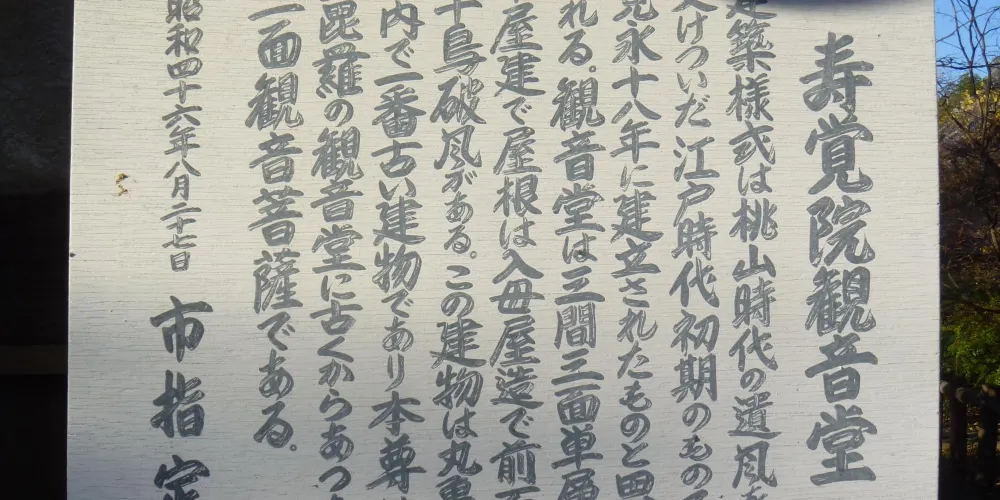 寿覚院観音堂
建築様式は桃山時代の遺風を
けついだ江戸時代初期のもの
寛永十八年に建立されたものと
れる。観音堂は三間三面単層
屋建で屋根は入母屋造で前
千鳥破風がある。この建物は丸亀
内で一番古い建物であり本尊
毘羅の観音堂に古くからあっ
一面観音菩薩である。
昭和四十六年八月二十七日 市指定